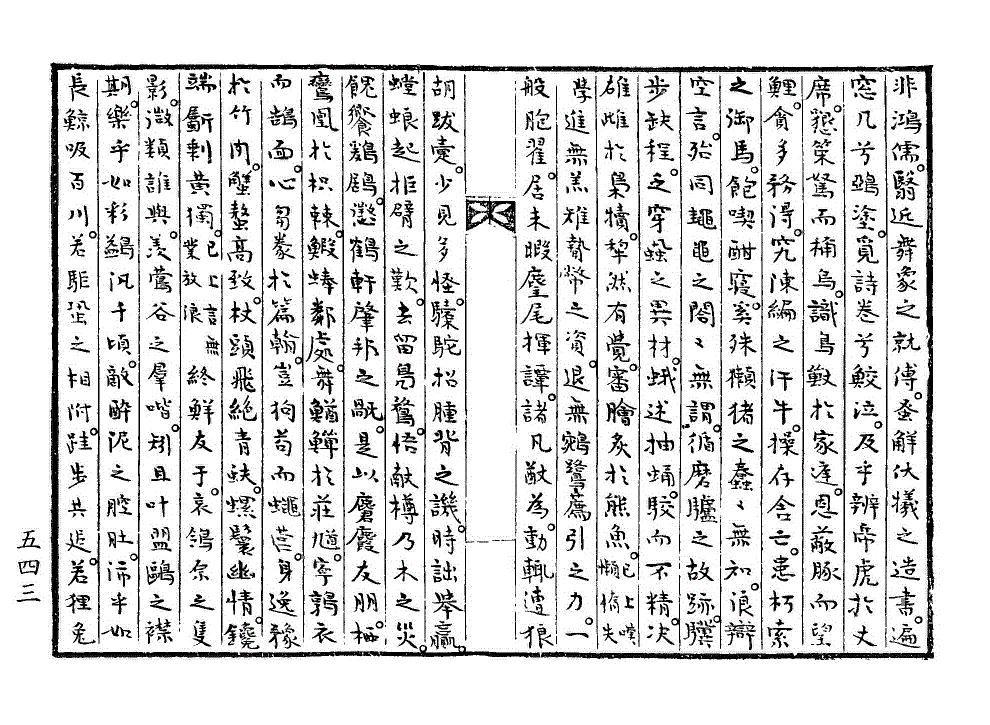 非鴻儒。翳近舞象之就傅。蚤解伏犧之造書。遍
窓几兮鵶塗。覓詩卷兮鮫泣。及乎辨帝虎於丈
席。懲策駑而桶烏。識鳥獸於家逹。恩蔽豚而望
鯉。貪多務得。究陳編之汗牛。操存舍亡。患朽索
之御馬。飽喫酣寢。奚殊獺猪之蠢〻無知。浪辯
空言。殆同䵷黽之閤〻無謂。循磨驢之故跡。驥
步缺程。乏穿蝨之異材。蛾述抽蛹。駮而不精。决
雄雌於梟犢。犂然有覺。審膾炙於熊魚。已上嘆懶惰失
學進無羔雉贄幣之資。退無鵷鷺薦引之力。一
般胞翟。居未暇麈尾揮譚。諸凡猷為。動輒遭狼
胡跋疐。少見多怪。驝駝招腫背之譏。時詘舉贏。
螳蜋起拒臂之歎。去留鳧鶩。悟献樽乃木之災。
餽饗鷄鶋。懲鶴軒肇邦之翫。是以麏麚友朋。栖
鸞凰於枳棘。鰕蜯鄰處。舞鰌鱓於莊馗。寧鶉衣
而鵠面。心芻豢於篇翰。豈狗苟而蠅營。身逸豫
於竹肉。蟹螯高致。杖頭飛絶青蚨。螺鬟幽情。鑱
端斸剩黄獨。已上言無業放浪終鮮友于。哀鴒原之隻
影。微類誰與。羨鶯谷之羣喈。矧且叶盟鷗之襟
期。樂乎如彩鷁汎千頃。敵醉泥之腔肚。沛乎如
長鯨吸百川。若駏蛩之相附。跬步共追。若狸兔
五四三